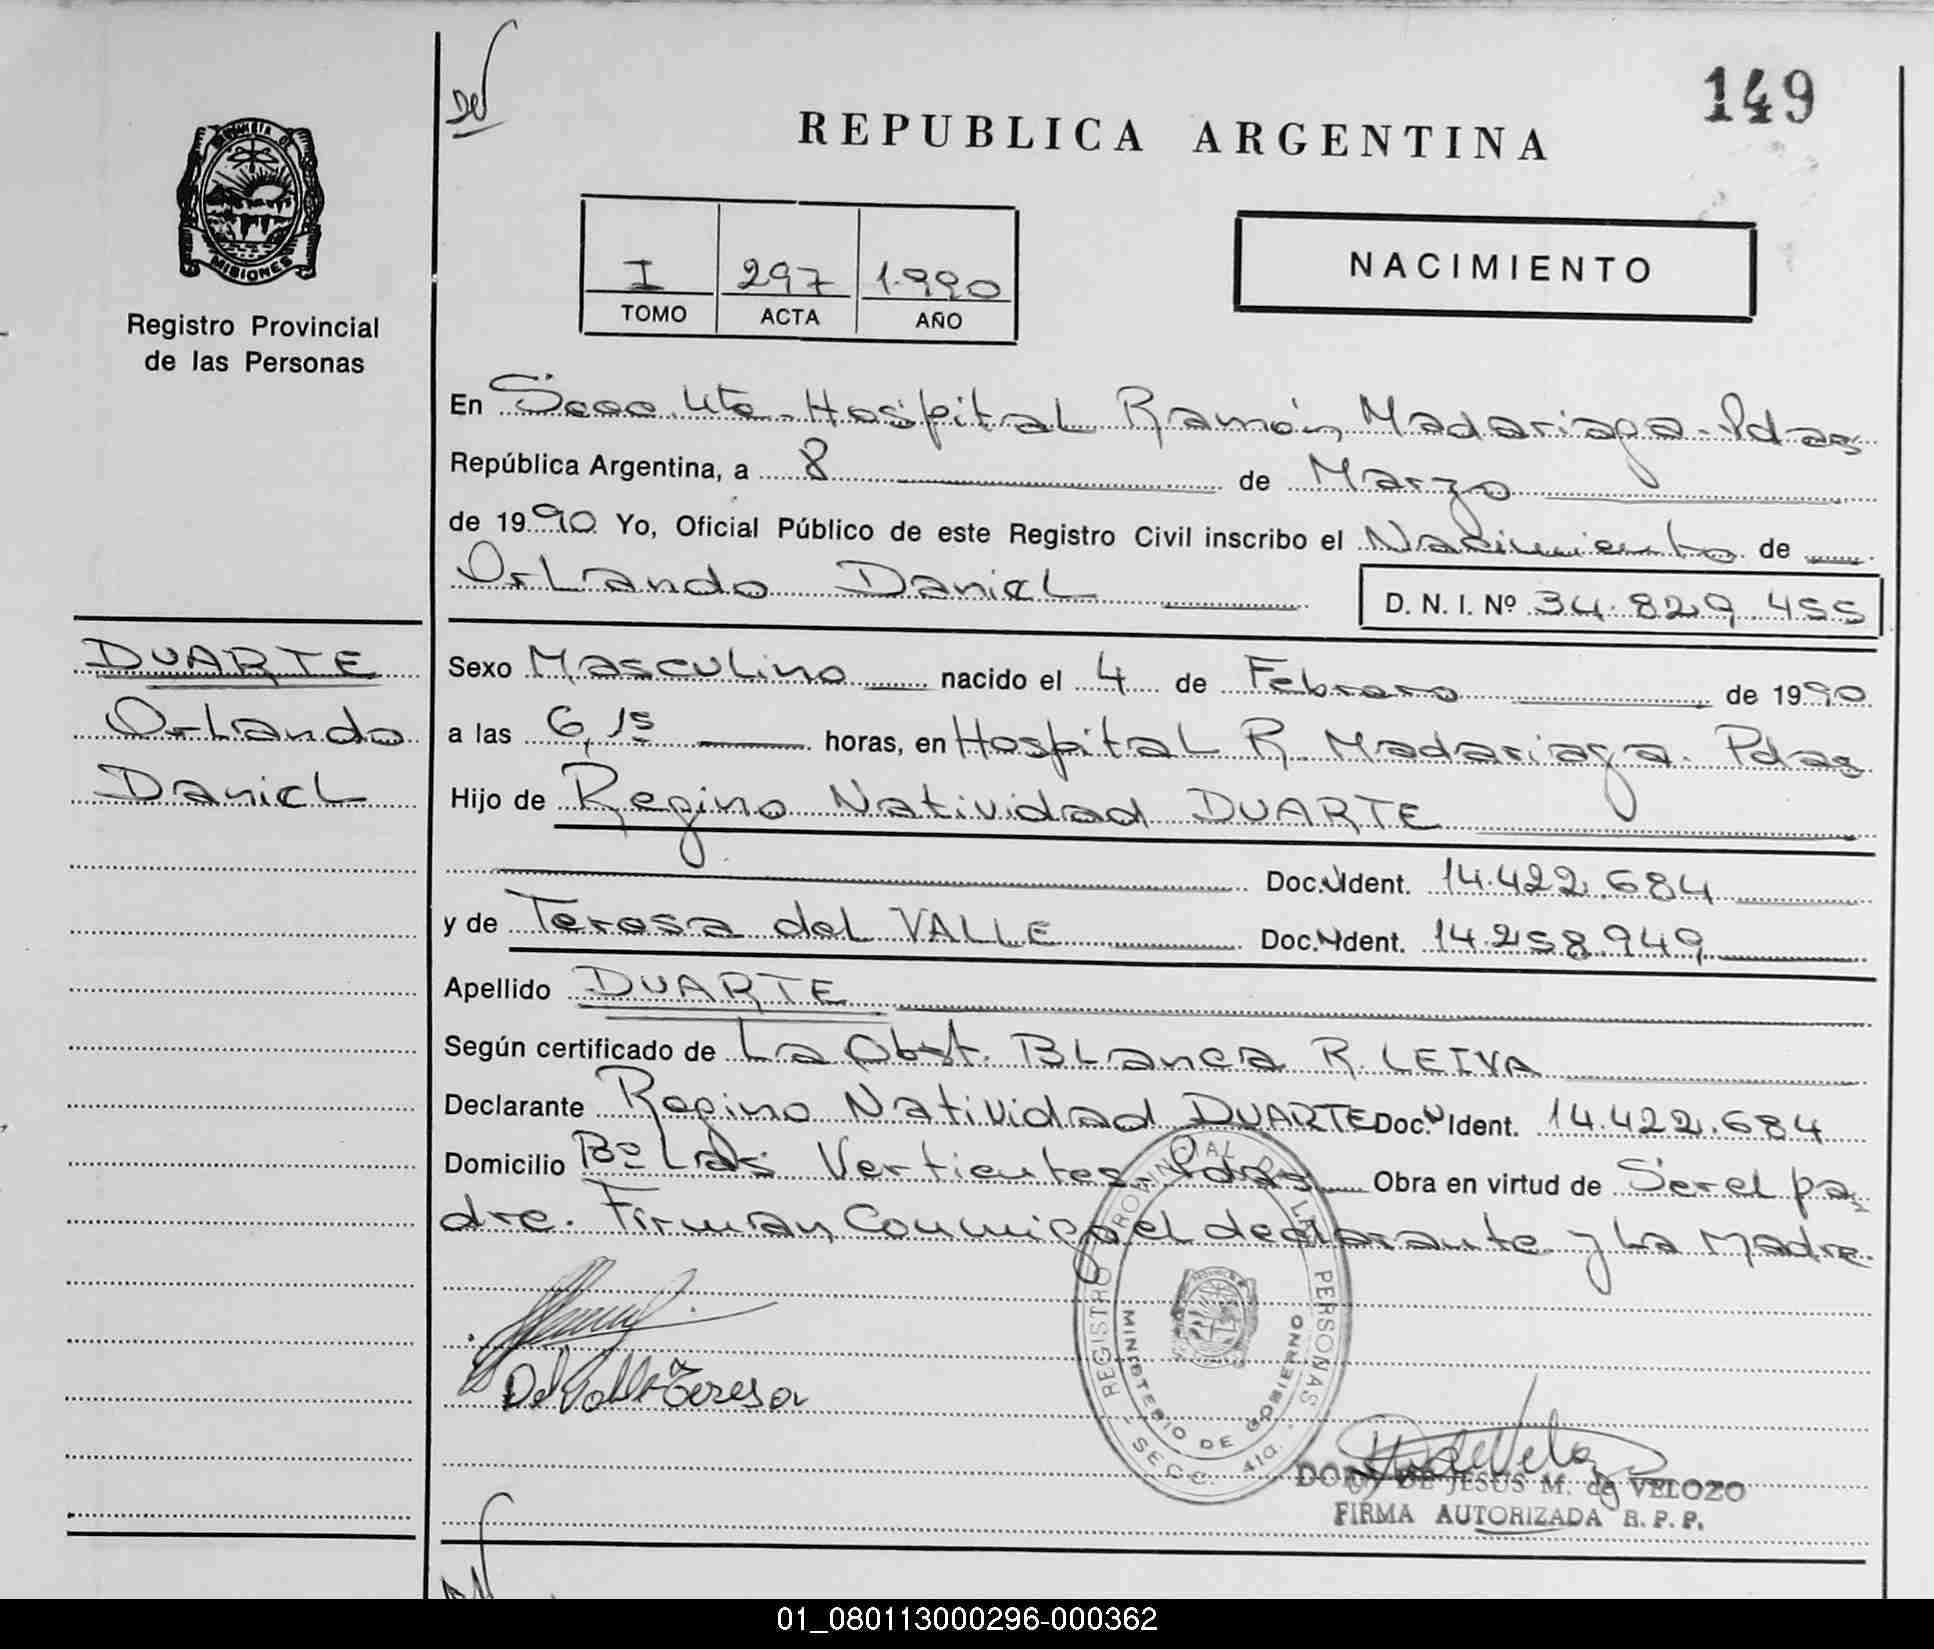 149
REPUBLICA ARGENTINA
MISIONES
Registro Provincial
de las Personas
I 297 1.990
TOMO ACTA AÑO
NACIMIENTO
En Secc. 4ta - Hospital Ramón Madariaga - Pdas
República Argentina, a 8 de Marzo
de 1990 Yo, Oficial Público de este Registro Civil inscribo el Nacimiento de
Orlando Daniel D. N. I. Nº 34.829.455
DUARTE
Orlando
Daniel
Sexo Masculino nacido el 4 de Febrero de 1990
a las 6,15 horas, en Hospital R. Madariaga. Pdas
Hijo de Regino Natividad DUARTE
Doc. Ident. 14.422.684
y de Teresa del VALLE Doc. Ident. 14.258.949
Apellido DUARTE
Según certificado de La Obst. Blanca R. LEIVA
Declarante Regino Natividad DUARTE Doc. Ident. 14.422.684
Domicilio Bº Las Vertientes. Pdas Obra en virtud de Ser el pa
dre. Firman Conmigo el declarante y La Madre.
REGISTRO PROVINCIAL DE LAS PERSONAS
MINISTERIO DE GOBIERNO
SECC. 4ta.
Del Valle Teresa
DE JESUS M. de VELOZO
FIRMA AUTORIZADA R. P. P.
01_080113000296-000362